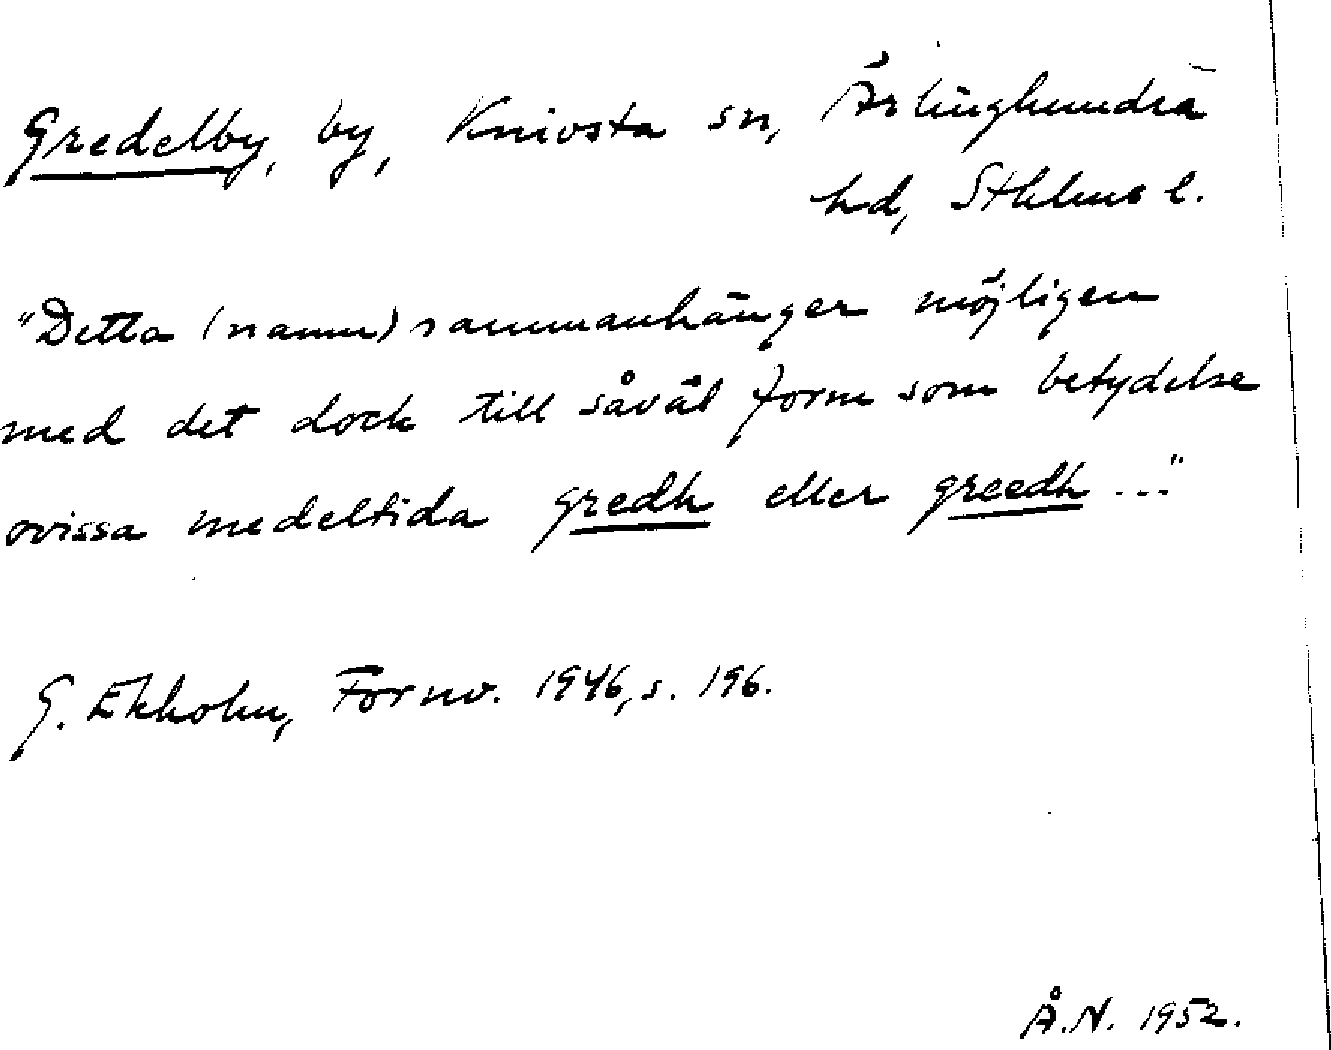 Gredelby, by, Knivsta sn, Ärlinghundra
hd, Sthlms l.
"Detta (namn) sammanhänger möjligen
med det dock till såväl form som betydelse
ovissa medeltida gredh eller greedh ..."
G. Ekholm, Fornv. 1946, s. 196.
Å.N. 1952.